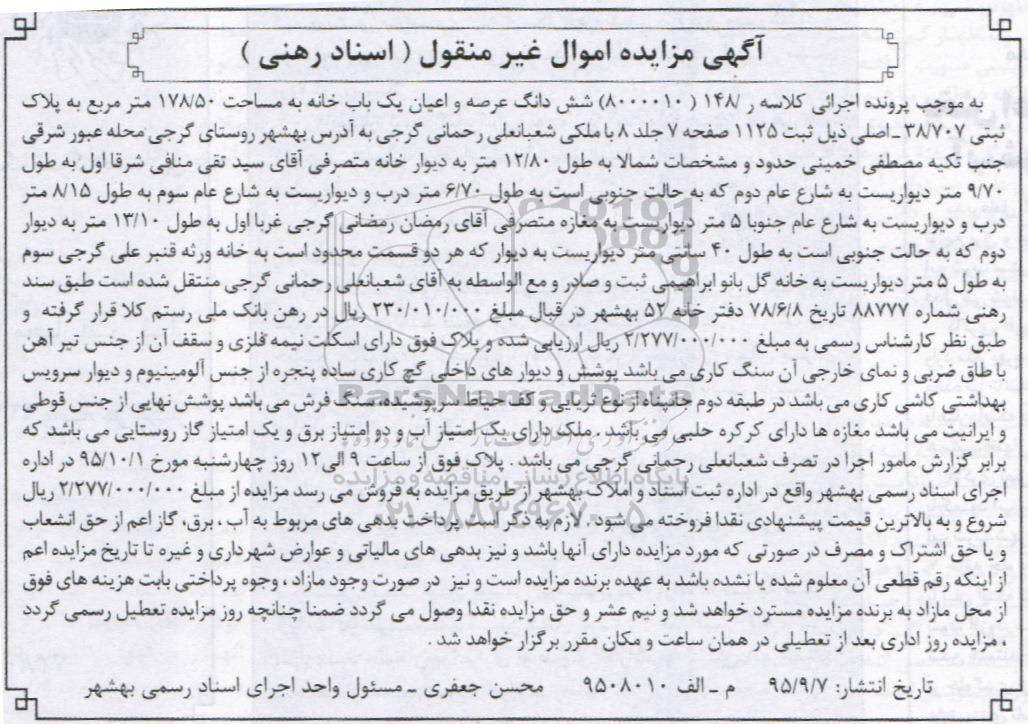 آگهی مزایده اموال غیر منقول ( اسناد رهنی )
به موجب پرونده اجرائی کلاسه ر /۱۴۸ ( ۸۰۰۰۰۱۰) شش دانگ عرصه و اعیان یک باب خانه به مساحت ۱۷۸/۵۰ متر مربع به پلاک
ثبتی ۳۸/۷۰۷ ـ اصلی ذیل ثبت ۱۱۲۵ صفحه ۷ جلد ۸ با ملکی شعبانعلی رحمانی گرجی به آدرس بهشهر روستای گرجی محله عبور شرقی
جنب تکیه مصطفی خمینی حدود و مشخصات شمالا به طول ۱۲/۸۰ متر به دیوار خانه متصرفی آقای سید تقی منافی شرقا اول به طول
۹/۷۰ متر دیواریست به شارع عام دوم که به حالت جنوبی است به طول ۶/۷۰ متر درب و دیواریست به شارع عام سوم به طول ۸/۱۵ متر
درب و دیواریست به شارع عام جنوبا ۵ متر دیواریست به مغازه متصرفی آقای رمضان رمضانی گرجی غربا اول به طول ۱۳/۱۰ متر به دیوار
دوم که به حالت جنوبی است به طول ۴۰ سانتی متر دیواریست به دیوار که هر دو قسمت محدود است به خانه ورثه قنبر علی گرجی سوم
به طول ۵ متر دیواریست به خانه گل بانو ابراهیمی ثبت و صادر و مع الواسطه به آقای شعبانعلی رحمانی گرجی منتقل شده است طبق سند
رهنی شماره ۸۸۷۷۷ تاریخ ۷۸/۶/۸ دفتر خانه ۵۲ بهشهر در قبال مبلغ ۲۳۰/۰۱۰/۰۰۰ ریال در رهن بانک ملی رستم کلا قرار گرفته و
طبق نظر کارشناس رسمی به مبلغ ۲/۲۷۷/۰۰۰/۰۰۰ ریال ارزیابی شده و پلاک فوق دارای اسکلت نیمه فلزی و سقف آن از جنس تیر آهن
با طاق ضربی و نمای خارجی آن سنگ کاری می باشد پوشش و دیوار های داخلی گچ کاری ساده پنجره از جنس آلومینیوم و دیوار سرویس
بهداشتی کاشی کاری می باشد در طبقه دوم جانپناه از نوع ثریایی و کف حیاط سرپوشیده، سنگ فرش می باشد پوشش نهایی از جنس قوطی
و ایرانیت می باشد مغازه ها دارای کرکره حلبی می باشد . ملک دارای یک امتیاز آب و دو امتیاز برق و یک امتیاز گاز روستایی می باشد که
برابر گزارش مامور اجرا در تصرف شعبانعلی رحمانی گرجی می باشد . پلاک فوق از ساعت ۹ الی ۱۲ روز چهارشنبه مورخ ۹۵/۱۰/۱ در اداره
اجرای اسناد رسمی بهشهر واقع در اداره ثبت اسناد و املاک بهشهر از طریق مزایده به فروش می رسد مزایده از مبلغ ۲/۲۷۷/۰۰۰/۰۰۰ ریال
شروع و به بالاترین قیمت پیشنهادی نقدا فروخته می شود . لازم به ذکر است پرداخت بدهی های مربوط به آب ، برق، گاز اعم از حق انشعاب
و یا حق اشتراک و مصرف در صورتی که مورد مزایده دارای آنها باشد و نیز بدهی های مالیاتی و عوارض شهرداری و غیره تا تاریخ مزایده اعم
از اینکه رقم قطعی آن معلوم شده یا نشده باشد به عهده برنده مزایده است و نیز در صورت وجود مازاد ، وجوه پرداختی بابت هزینه های فوق
از محل مازاد به برنده مزایده مسترد خواهد شد و نیم عشر و حق مزایده نقدا وصول می گردد ضمنا چنانچه روز مزایده تعطیل رسمی گردد
، مزایده روز اداری بعد از تعطیلی در همان ساعت و مکان مقرر برگزار خواهد شد.
تاریخ انتشار: ۹۵/۹/۷ م ـ الف ۹۵۰۸۰۱۰ محسن جعفری ـ مسئول واحد اجرای اسناد رسمی بهشهر
ParsNamadData
پایگاه اطلاع رسانی مناقصه و مزایده
۰۲۱-۸۸۳۴۹۶۷۰-۵